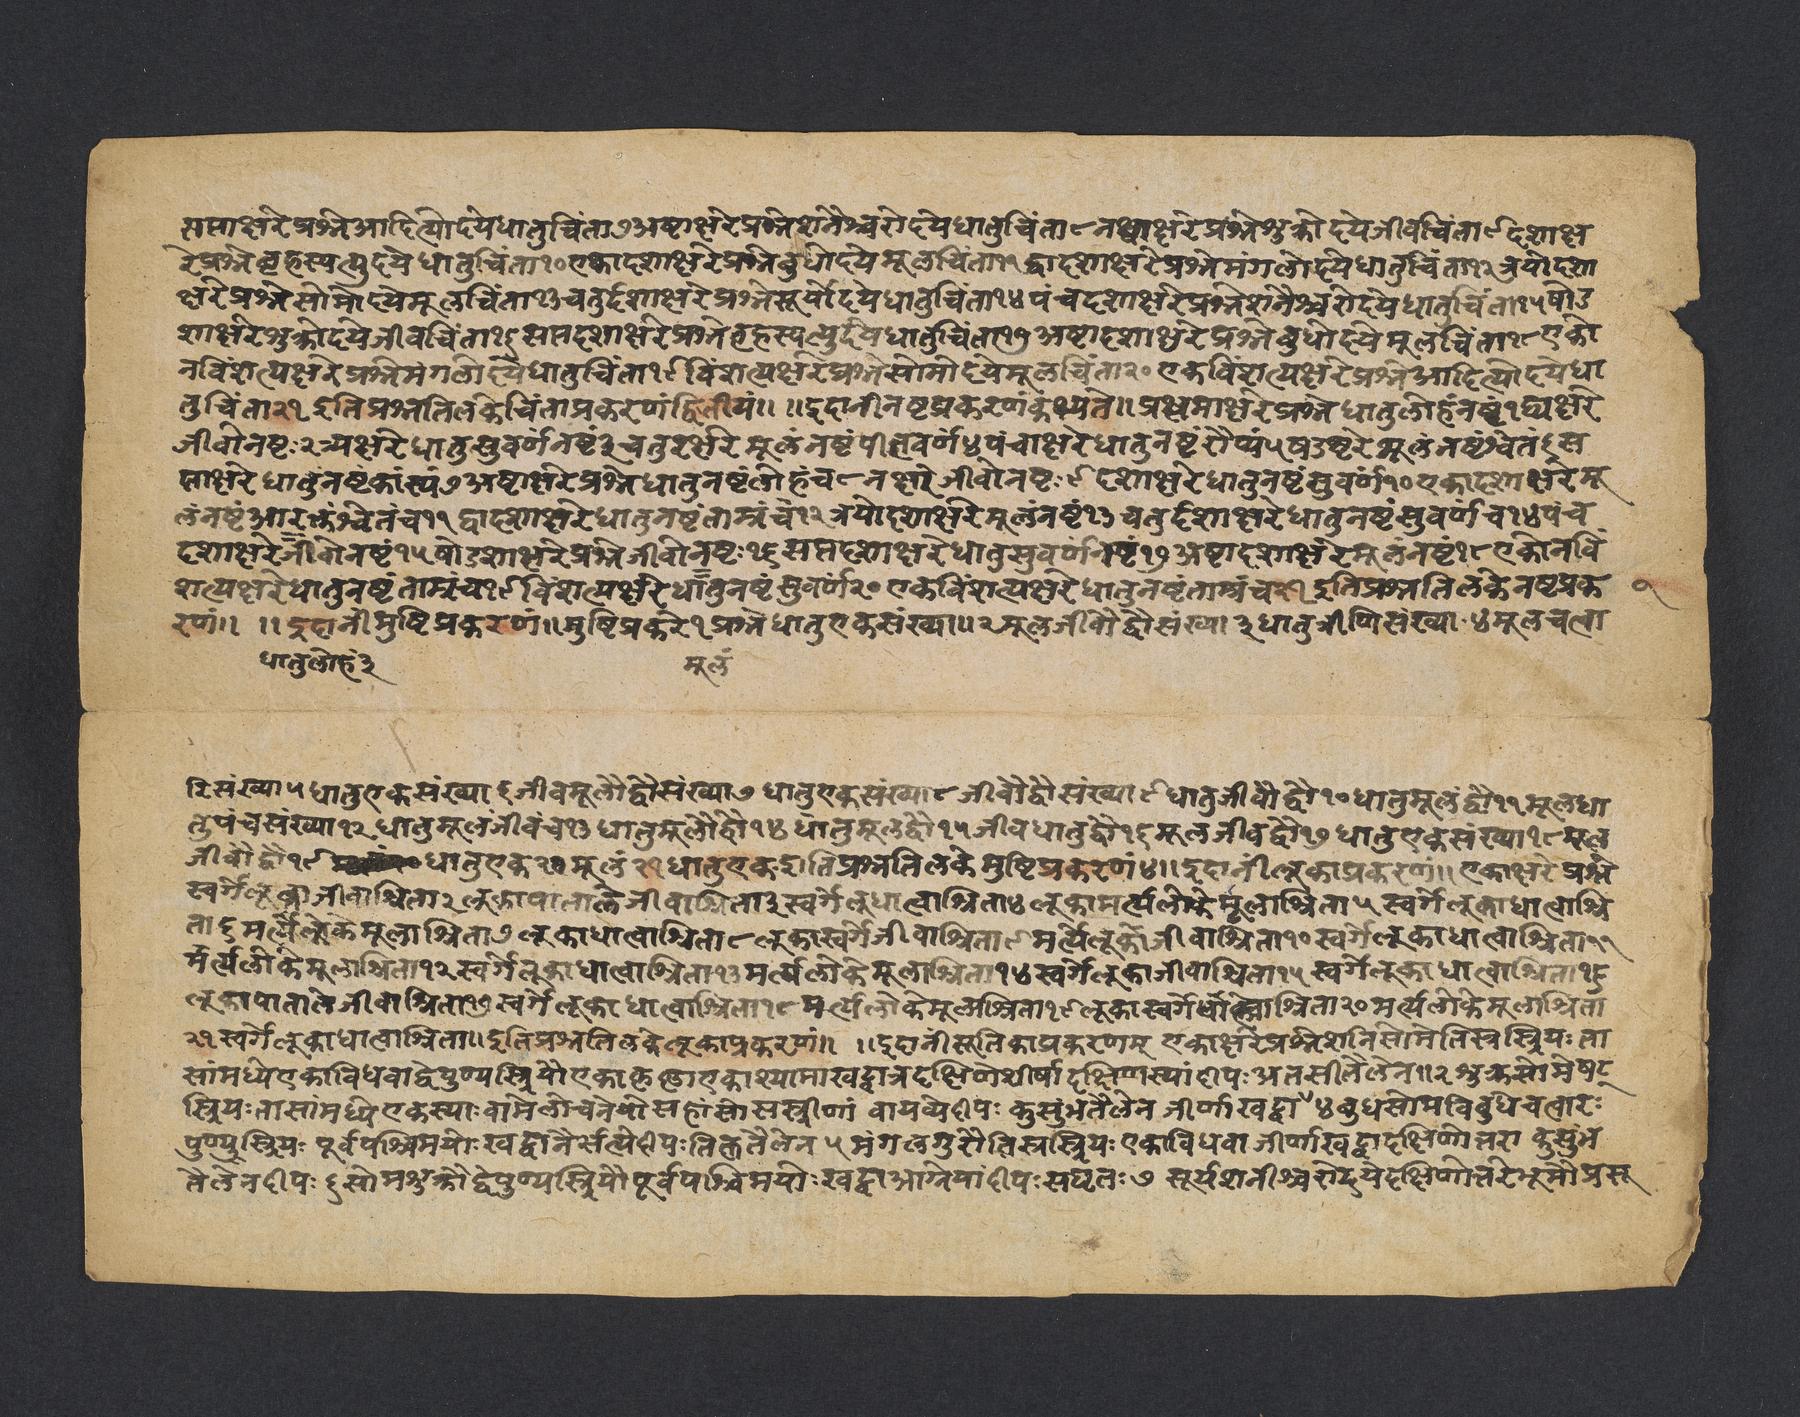 सप्ताक्षरे प्रश्ने आदित्योदये धातुचिंता ७ अष्टाक्षरे प्रश्ने शनैश्चरोदये धातुचिंता ८ नवाक्षरे प्रश्ने शुक्रोदये जीवचिंता ९ दशाक्ष
रे प्रश्ने बृहस्पत्युदये धातुचिंता १० एकादशाक्षरे प्रश्ने बुधोदये मूलचिंता ११ द्वादशाक्षरे प्रश्ने मंगलोदये धातुचिंता १२ त्रयोदशा
क्षरे प्रश्ने सोमोदये मूलचिंता १३ चतुर्दशाक्षरे प्रश्ने सूर्योदये धातुचिंता १४ पंचदशाक्षरे प्रश्ने शनैश्चरोदये धातुचिंता १५ षोड
शाक्षरे शुक्रोदये जीवचिंता १६ सप्तदशाक्षरे प्रश्ने बृहस्पत्युदये धातुचिंता १७ अष्टादशाक्षरे प्रश्ने बुधोदये मूलचिंता १८ एको
नविंशत्यक्षरे प्रश्ने मंगलोदये धातुचिंता १९ विंशत्यक्षरे प्रश्ने सोमोदये मूलचिंता २० एकविंशत्यक्षरे प्रश्ने आदित्योदये धा
तुचिंता २१ इति प्रश्नतिलके चिंताप्रकरणं द्वितीयं॥ ॥इदानीं नष्टप्रकरणं कथ्यते॥ प्रथमाक्षरे प्रश्ने धातुलोहं नष्टं १ द्व्यक्षरे
जीवो नष्टः २ त्र्यक्षरे धातुसुवर्णं नष्टं ३ चतुरक्षरे मूलं नष्टं पीतवर्णं ४ पंचाक्षरे धातुनष्टं रौप्यं ५ षडक्षरे मूलं नष्टं श्वेतं ६ स
प्ताक्षरे धातुनष्टं कांस्यं ७ अष्टाक्षरे प्रश्ने धातुनष्टं लोहं च ८ नवाक्षरे जीवो नष्टः ९ दशाक्षरे धातुनष्टं सुवर्ण १० एकादशाक्षरे मू
लं नष्टं आरक्तं श्वेतं च ११ द्वादशाक्षरे धातुनष्टं ताम्रं च १२ त्रयोदशाक्षरे मूलं नष्टं १३ चतुर्दशाक्षरे धातुनष्टं सुवर्णं च १४ पंच
दशाक्षरे जीवो नष्टं १५ षोडशाक्षरे प्रश्ने जीवो नष्टः १६ सप्तदशाक्षरे धातुसुवर्णं नष्टं १७ अष्टादशाक्षरे मूलं नष्टं १८ एकोनविं
शत्यक्षरे धातुनष्टं ताम्रं च १९ विंशत्यक्षरे धातुनष्टं सुवर्ण २० एकविंशत्यक्षरे धातुनष्टं ताम्रं च २१ इति प्रश्नतिलके नष्टप्रक
रणं॥ ॥इदानीं मुष्टिप्रकरणं॥ मुष्टिप्रकरे १ प्रश्ने धातु एकसंख्या॥ २ मूलजीवौ द्वौ संख्या ३ धातु त्रीणि संख्या ४ मूल चत्वा
धातुलोहं ३ मूलं
रि संख्या ५ धातु एकसंख्या ६ जीवमूलौ द्वौ संख्या ७ धातु एकसंख्या ८ जीवौ द्वौ संख्या ९ धातुजीवौ द्वौ १० धातुमूलं द्वौ ११ मूलधा
तु पंचसंख्या १२ धातुमूलं जीवं च १३ धातुमूलौ द्वौ १४ धातुमूलद्वौ १५ जीवधातुद्वौ १६ मूलजीवद्वौ १७ धातु एकसंख्या १८ मूल
जीवौ द्वौ १९ धातु एक २० मूलं २१ धातु एक इति प्रश्नतिलके मुष्टिप्रकरणं ४॥ इदानीं लूकाप्रकरणं॥ एकाक्षरे प्रश्ने
स्वर्गे लूका जीवाश्रिता २ लूका पाताले जीवाश्रिता ३ स्वर्गे लू धात्वाश्रिता ४ लूका मर्त्यलोके मूलाश्रिता ५ स्वर्गे लूका धात्वाश्रि
ता ६ मर्त्यलोके मूलाश्रिता ७ लूका धात्वाश्रिता ८ लूका स्वर्गे जीवाश्रिता ९ मर्त्ये लूका जीवाश्रिता १० स्वर्गे लूका धात्वाश्रिता ११
मर्त्यलोके मूलाश्रिता १२ स्वर्गे लूका धात्वाश्रिता १३ मर्त्यलोके मूलाश्रिता १४ स्वर्गे लूका जीवाश्रिता १५ स्वर्गे लूका धात्वाश्रिता १६
लूका पाताले जीवाश्रिता १७ स्वर्गे लूका धात्वाश्रिता १८ मर्त्यलोके मूलाश्रिता १९ लूका स्वर्गे धात्वाश्रिता २० मर्त्यलोके मूलाश्रिता
२१ स्वर्गे लूका धात्वाश्रिता॥ इति प्रश्नतिलके लूकाप्रकरणं॥ ॥इदानीं सूतिकाप्रकरणम् एकाक्षरे प्रश्ने शनिसोमे तिस्र स्त्रियः ता
सां मध्ये एका विधवा द्वे पुण्यस्त्रियौ एका एका श्यामा खट्वात्र दक्षिणे शीर्षा दक्षिणस्यां दीपः अतसीतैलेन॥ २ शुक्रसोमे षट्
स्त्रियः तासां मध्ये एकस्याः वामलोचने स्त्रीणां वायव्ये दीपः कुसुंभतैलेन जीर्णा खट्वा ४ बुधसोम चत्वारः
पुण्यस्त्रियः पूर्वपश्चिमयोः खट्वा नैर्ऋत्ये दीपः तिक्ततैलेन ५ मंगलगुरौ तिस्र स्त्रियः एका विधवा जीर्णखट्वा दक्षिणोत्तरा कुसुंभ
तैलेन दीपः ६ सोमशुक्रौ द्वे पुण्यस्त्रियौ पूर्वपश्चिमयोः खट्वा आग्नेयां दीपः सघृतः ७ सूर्यशनैश्चरोदये दक्षिणोत्तरे भूमौ प्रसू